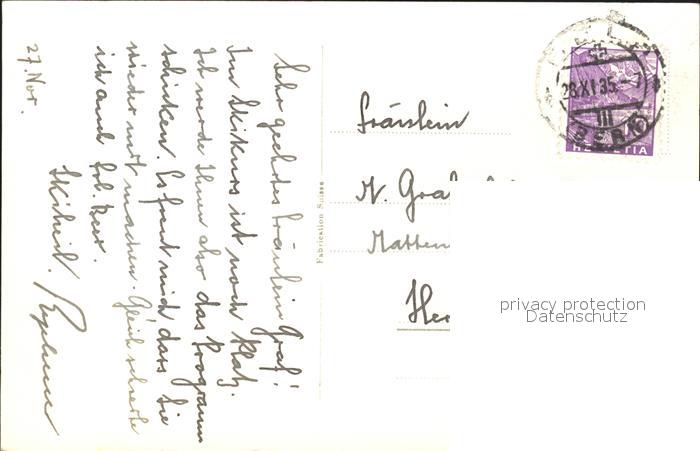 27. Nov.
Sehr geehrtes Fräulein Graf!
Im Skikurs ist noch Platz.
Ich werde Ihnen also das Programm
schicken. Es freut mich dass Sie
wieder mit machen. Gleich
ich and
Skiheil.
Fabrication Suisse
Fräulein
N. Gra
Matten
Her
28.XI.35.-7
III
BERN
HELVETIA
privacy protection
Datenschutz